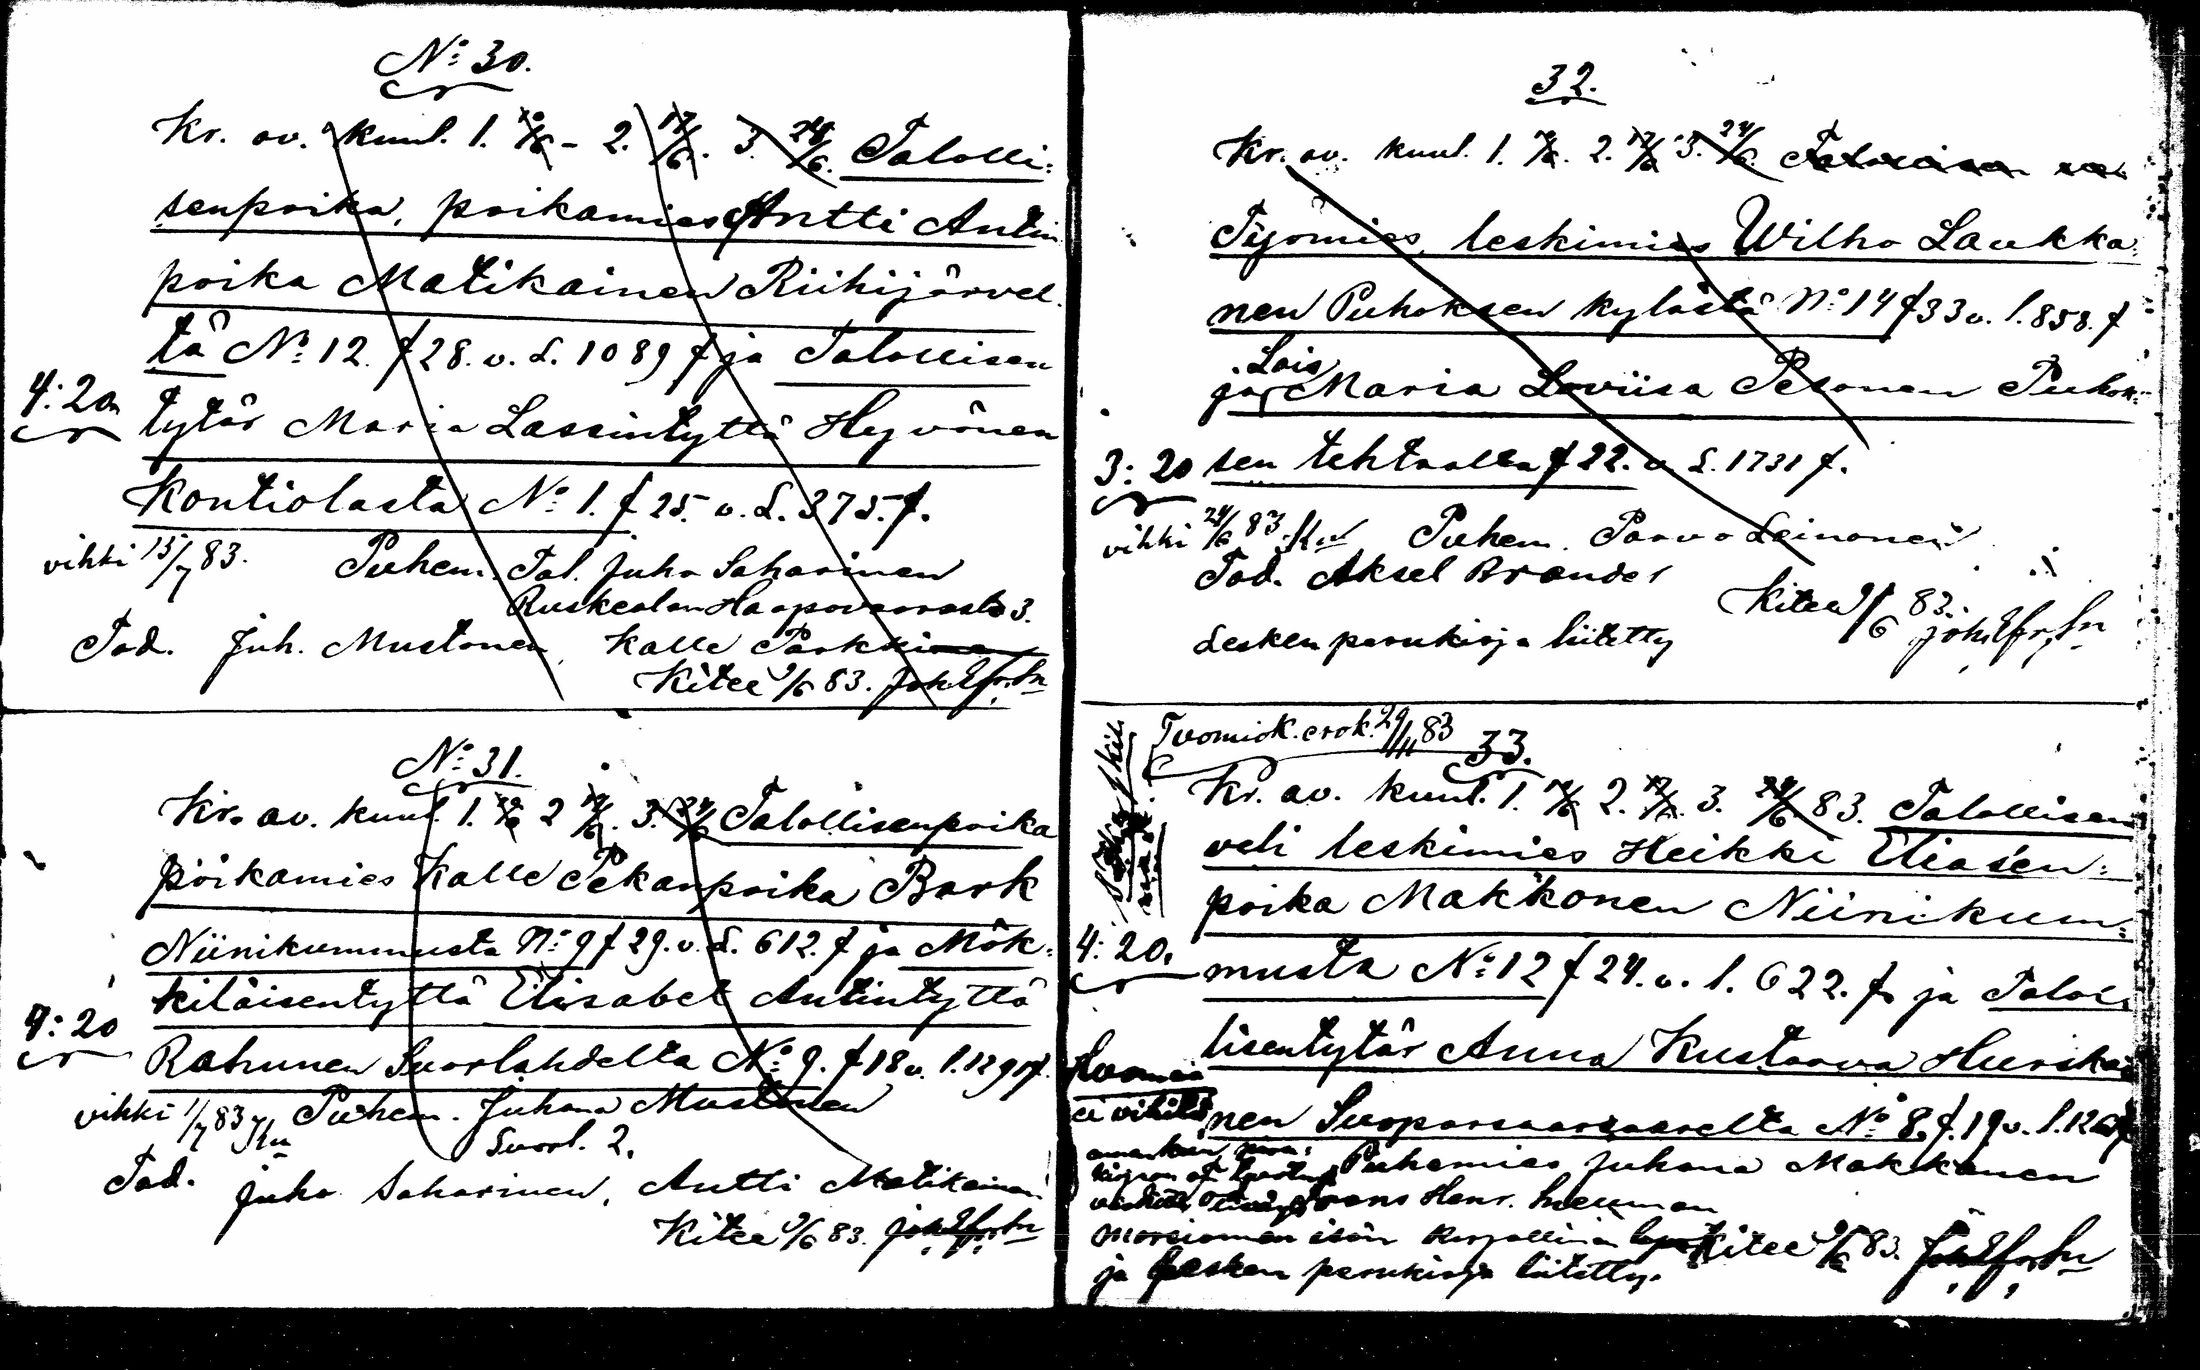 No 30.
Kr. av. kuul. 1. 10/6 - 2. 17/6. 3. 24/6. Talolli=
senpoika, poikamies Antti Antin
poika Matikainen Riihijärvel.
tä No 12. f 28. v. S. 1089 f ja Talollisen
4:20
tytär Maria Lassintyttö Hyvönen
Kontiolasta No 1. f 25. v. S. 375. f.
vihki 15/7 83. Puhem. Tal. Juho Saharinen
Ruskealan Haapovaarasta 3.
Tod. Juh. Mustonen, Kalle Parkkinen
Kitee 9/6 83.
No 31.
Kr. av. kuul. 1. 10/6 2 17/6. 3. 24/6 Talollisenpoika
poikamies Kalle Pekanpoika Bark
Niinikummusta No 9 f 29. v. S. 612. f ja Mök=
kiläisentyttö Elisabet Antintyttö
4:20
Rahunen Suorlahdelta No 9. f 18 v. l.
vihki 1/7 83 Puhem. Juhana Mustonen
Suorl. 2.
Tod. Juho Saharinen, Antti Matikainen
Kitee 9/6 83.
32.
Kr. av. kuul. 1. 10/6. 2. 17/6 3. 24/6.
Työmies, leskimies Wilho Laukka=
nen Puhoksen kylästä No 14 f 33 v. l. 858. f
Lois
ja Maria Loviisa Pesonen Puhok=
3:20 sen tehtaalta f 22. v. S. 1731 f.
vihki 24/6 83 Puhem. Paavo Leinonen
Tod. Aksel Brander
Kitee 9/6 83.
Lesken perukirja liitetty
83 33.
Kr. av. kuul. 1. 10/6 2. 17/6. 3. 24/6. 83. Talollisen
veli leskimies Heikki Eliasen=
poika Makkonen Niinikum=
4:20.
musta No 12 f 24. v. l. 622. f. ja Talol=
lisentytär Anna Kustaava Hurskai
ei vihitä
nen Suoparsaaresaarelta No 8. f. 19 v. l.
Puhemies Juhana Makkonen
Frans Henr.
morsiamen isän kirjallinen lupa Kitee 9/6 83.
ja lesken perukirja liitetty.